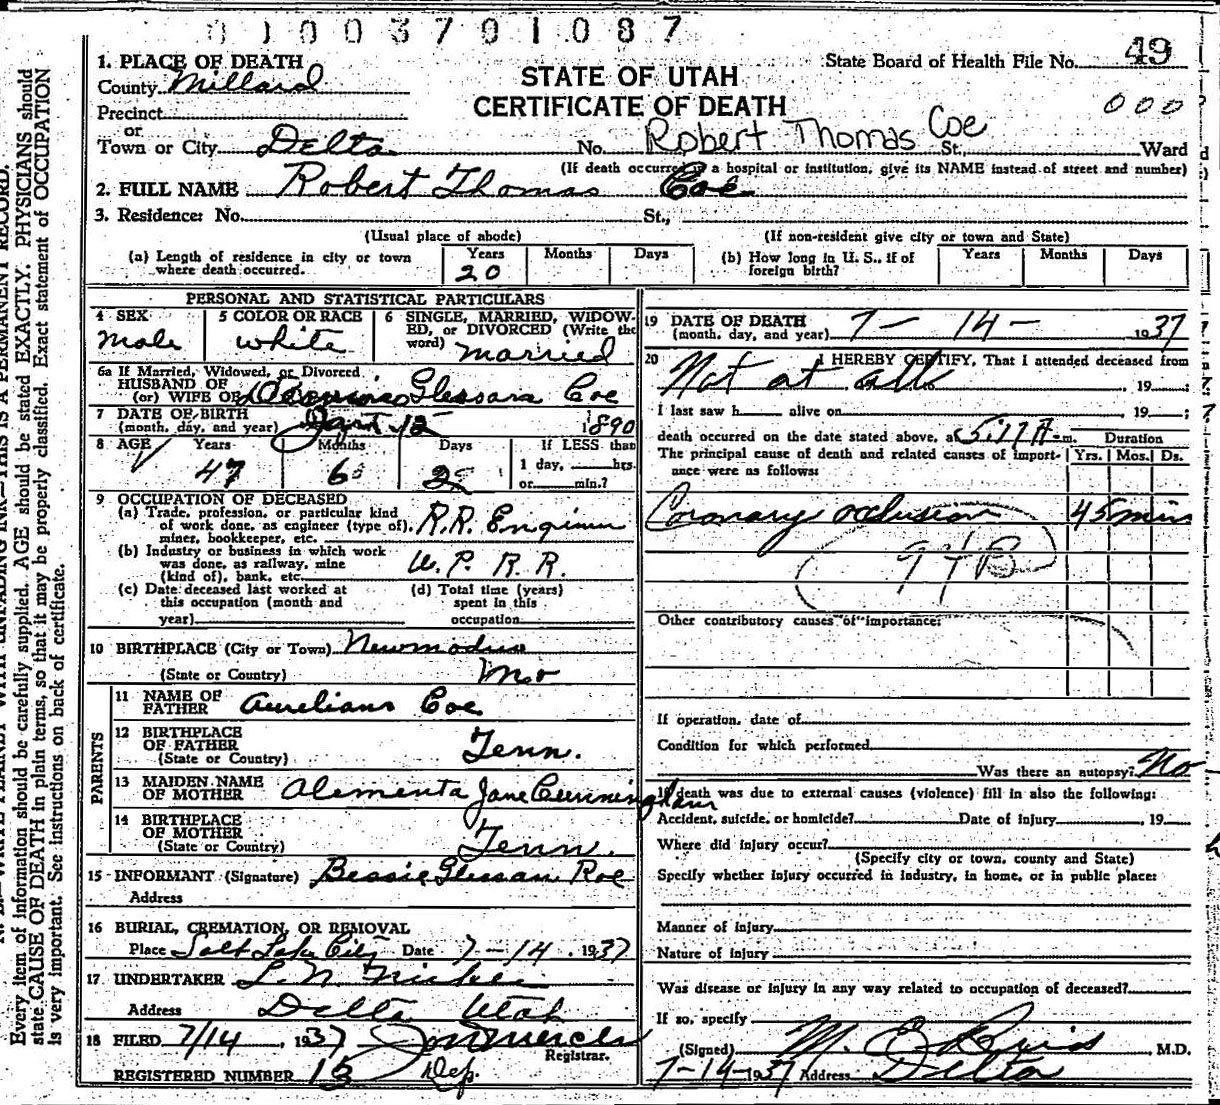 0 1 0 0 3 7 0 1 0 8 7
1. PLACE OF DEATH
County Millard
STATE OF UTAH
CERTIFICATE OF DEATH
State Board of Health File No. 49
000
Precinct
or
Town or City Delta No. Robert Thomas Coe St. Ward
(If death occurred a hospital or institution, give its NAME instead of street and number)
2. FULL NAME Robert Thomas Coe
3. Residence: No. St.,
(Usual place of abode) (If non-resident give city or town and State)
(a) Length of residence in city or town where death occurred. Years 20 Months Days
(b) How long in U. S., if of foreign birth? Years Months Days
PERSONAL AND STATISTICAL PARTICULARS
4 SEX Male
5 COLOR OR RACE white
6 SINGLE, MARRIED, WIDOWED, or DIVORCED (Write the word) married
6a If Married, Widowed, or Divorced
HUSBAND OF
(or) WIFE OF Coe
7 DATE OF BIRTH
(month, day, and year) 1890
8 AGE Years 47 Months 6 Days
If LESS than
1 day, hrs.
or min.?
9 OCCUPATION OF DECEASED
(a) Trade, profession, or particular kind
of work done, as engineer (type of),
miner, bookkeeper, etc. R.R. Engineer
(b) Industry or business in which work
was done, as railway, mine
(kind of), bank, etc. W. P. R. R.
(c) Date deceased last worked at
this occupation (month and
year)
(d) Total time (years)
spent in this
occupation
10 BIRTHPLACE (City or Town)
(State or Country) Mo
PARENTS
11 NAME OF
FATHER Coe
12 BIRTHPLACE
OF FATHER
(State or Country) Tenn.
13 MAIDEN NAME
OF MOTHER Alementa Jane Cunningham
14 BIRTHPLACE
OF MOTHER
(State or Country) Tenn.
15 INFORMANT (Signature) Bessie
Address
16 BURIAL, CREMATION, OR REMOVAL
Place Salt Lake City Date 7-14, 1937
17 UNDERTAKER L. N.
Address Delta Utah
18 FILED 7/14, 1937
Registrar.
REGISTERED NUMBER Dep.
19 DATE OF DEATH
(month, day, and year) 7- 14- 1937
20 I HEREBY CERTIFY, That I attended deceased from
Not at all, 19 ;
I last saw h alive on , 19 ;
death occurred on the date stated above, a 5:17 A m.
The principal cause of death and related causes of importance were as follows:
Duration
Yrs. Mos. Ds.
Coronary occlusion 45 mins
94B
Other contributory causes of importance:
If operation, date of
Condition for which performed
Was there an autopsy? No
If death was due to external causes (violence) fill in also the following:
Accident, suicide, or homicide? Date of injury , 19
Where did injury occur?
(Specify city or town, county and State)
Specify whether injury occurred in industry, in home, or in public place:
Manner of injury
Nature of injury
Was disease or injury in any way related to occupation of deceased?
If so, specify
(Signed) M. E. , M.D.
7-14-1937 Address Delta
Every item of information should be carefully supplied. AGE should be stated EXACTLY. PHYSICIANS should
state CAUSE OF DEATH in plain terms, so that it may be properly classified. Exact statement of OCCUPATION
is very important. See instructions on back of certificate.